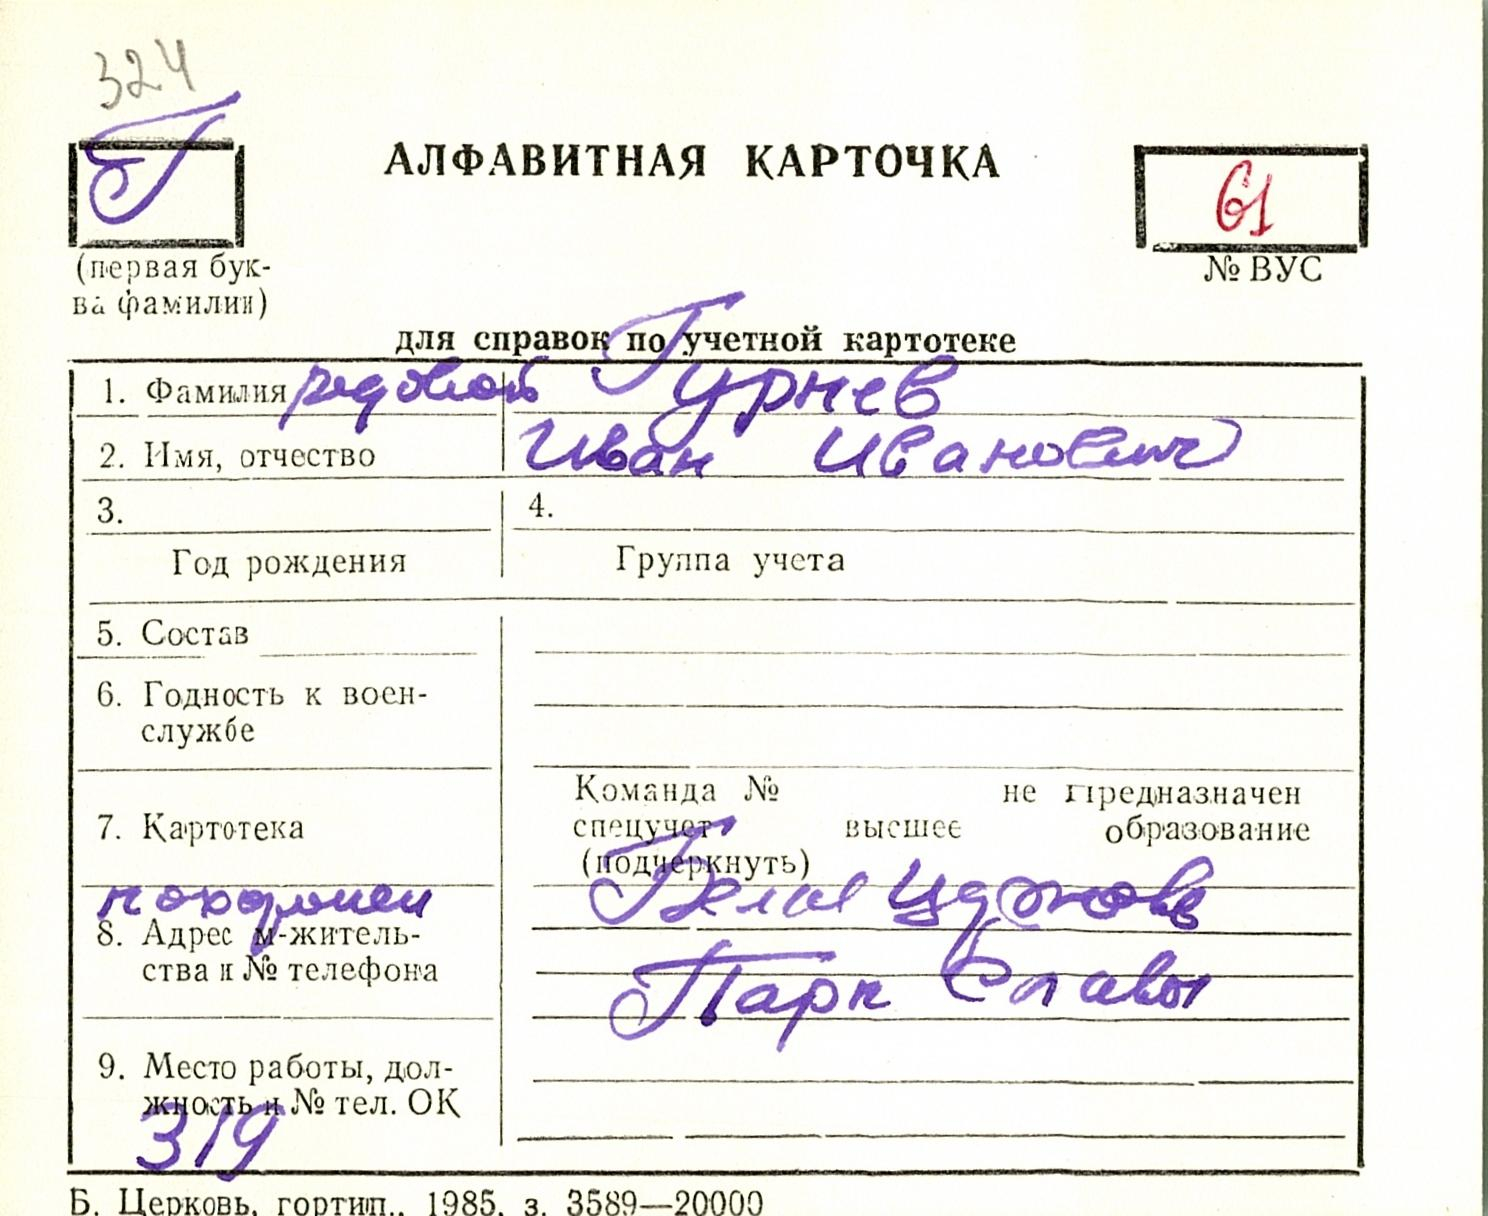 324
Г
АЛФАВИТНАЯ КАРТОЧКА
61
(первая бук-
ва фамилии)
№ ВУС
для справок по учетной картотеке
1. Фамилия рядовой Гурнев
2. Имя, отчество Иван Иванович
3. 4.
Год рождения Группа учета
5. Состав
6. Годность к воен-
службе
7. Картотека
Команда № не предназначен
спецучет высшее образование
(подчеркнуть)
похоронен Белая Церковь
8. Адрес м-житель-
ства и № телефона
Парк Славы
9. Место работы, дол-
жность и № тел. ОК
319
Б. Церковь, гортип., 1985, з. 3589—20000